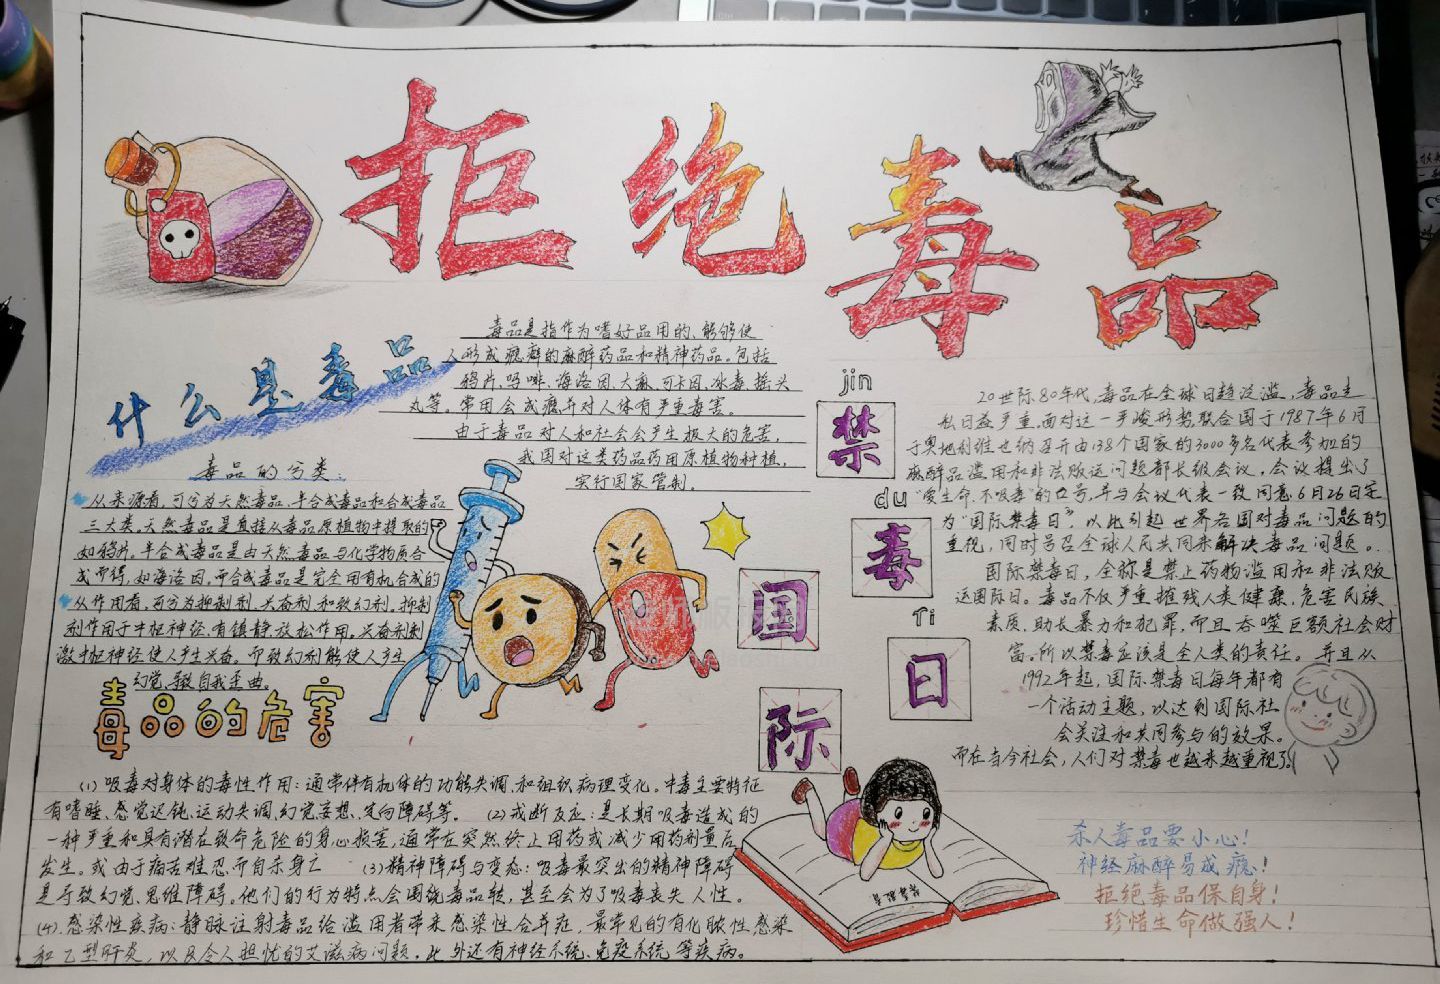 拒绝毒品
什么是毒品
毒品是指作为嗜好品用的、能够使
人形成瘾癖的麻醉药品和精神药品。包括
鸦片、吗啡、海洛因、大麻、可卡因、冰毒、摇头
丸等。常用会成瘾并对人体有严重毒害。
由于毒品对人和社会会产生极大的危害,
我国对这类药品药用原植物种植,
实行国家管制。
毒品的分类:
从来源看,可分为天然毒品、半合成毒品和合成毒品
三大类。天然毒品是直接从毒品原植物中提取的
如鸦片。半合成毒品是由天然毒品与化学物质合
成而得,如海洛因,而合成毒品是完全用有机合成的
从作用看,可分为抑制剂、兴奋剂和致幻剂。抑制
剂作用于中枢神经,有镇静放松作用,兴奋剂刺
激中枢神经使人产生兴奋。而致幻剂能使人产生
幻觉,导致自我歪曲。
jin
禁
du
毒
Ti
日
国
际
20世际80年代,毒品在全球日趋泛滥,毒品走
私日益严重。面对这一严峻形势联合国于1987年6月
于奥地利维也纳召开由138个国家的3000多名代表参加的
麻醉品滥用和非法贩运问题部长级会议。会议提出了
“爱生命,不吸毒”的口号,并与会议代表一致同意6月26日定
为“国际禁毒日”,以此引起世界各国对毒品问题的
重视,同时号召全球人民共同来解决毒品问题。
国际禁毒日,全称是禁止药物滥用和非法贩
运国际日。毒品不仅严重摧残人类健康,危害民族
素质,助长暴力和犯罪,而且吞噬巨额社会财
富。所以禁毒应该是全人类的责任。并且从
1992年起,国际禁毒日每年都有
一个活动主题,以达到国际社
会关注和共同参与的效果。
而在当今社会,人们对禁毒也越来越重视了
毒品的危害
(1)吸毒对身体的毒性作用:通常伴有机体的功能失调和组织病理变化。中毒主要特征
有嗜睡、感觉迟钝、运动失调、幻觉妄想、定向障碍等。(2)戒断反应:是长期吸毒造成的
一种严重和具有潜在致命危险的身心损害,通常在突然终止用药或减少用药剂量后
发生。或由于痛苦难忍而自杀身亡 (3)精神障碍与变态:吸毒最突出的精神障碍
是导致幻觉、思维障碍。他们的行为特点会围绕毒品转,甚至会为了吸毒丧失人性。
(4)感染性疾病:静脉注射毒品给滥用者带来感染性合并症,最常见的有化脓性感染
和乙型肝炎,以及令人担忧的艾滋病问题。此外还有神经系统、免疫系统等疾病。
杀人毒品要小心!
神经麻醉易成瘾!
拒绝毒品保自身!
珍惜生命做强人!